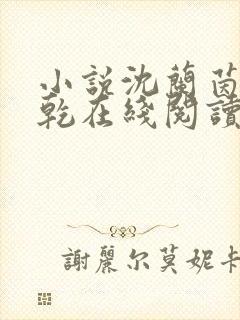 小說沈蘭茵
乾在綫閱讀
謝麗尔莫妮卡